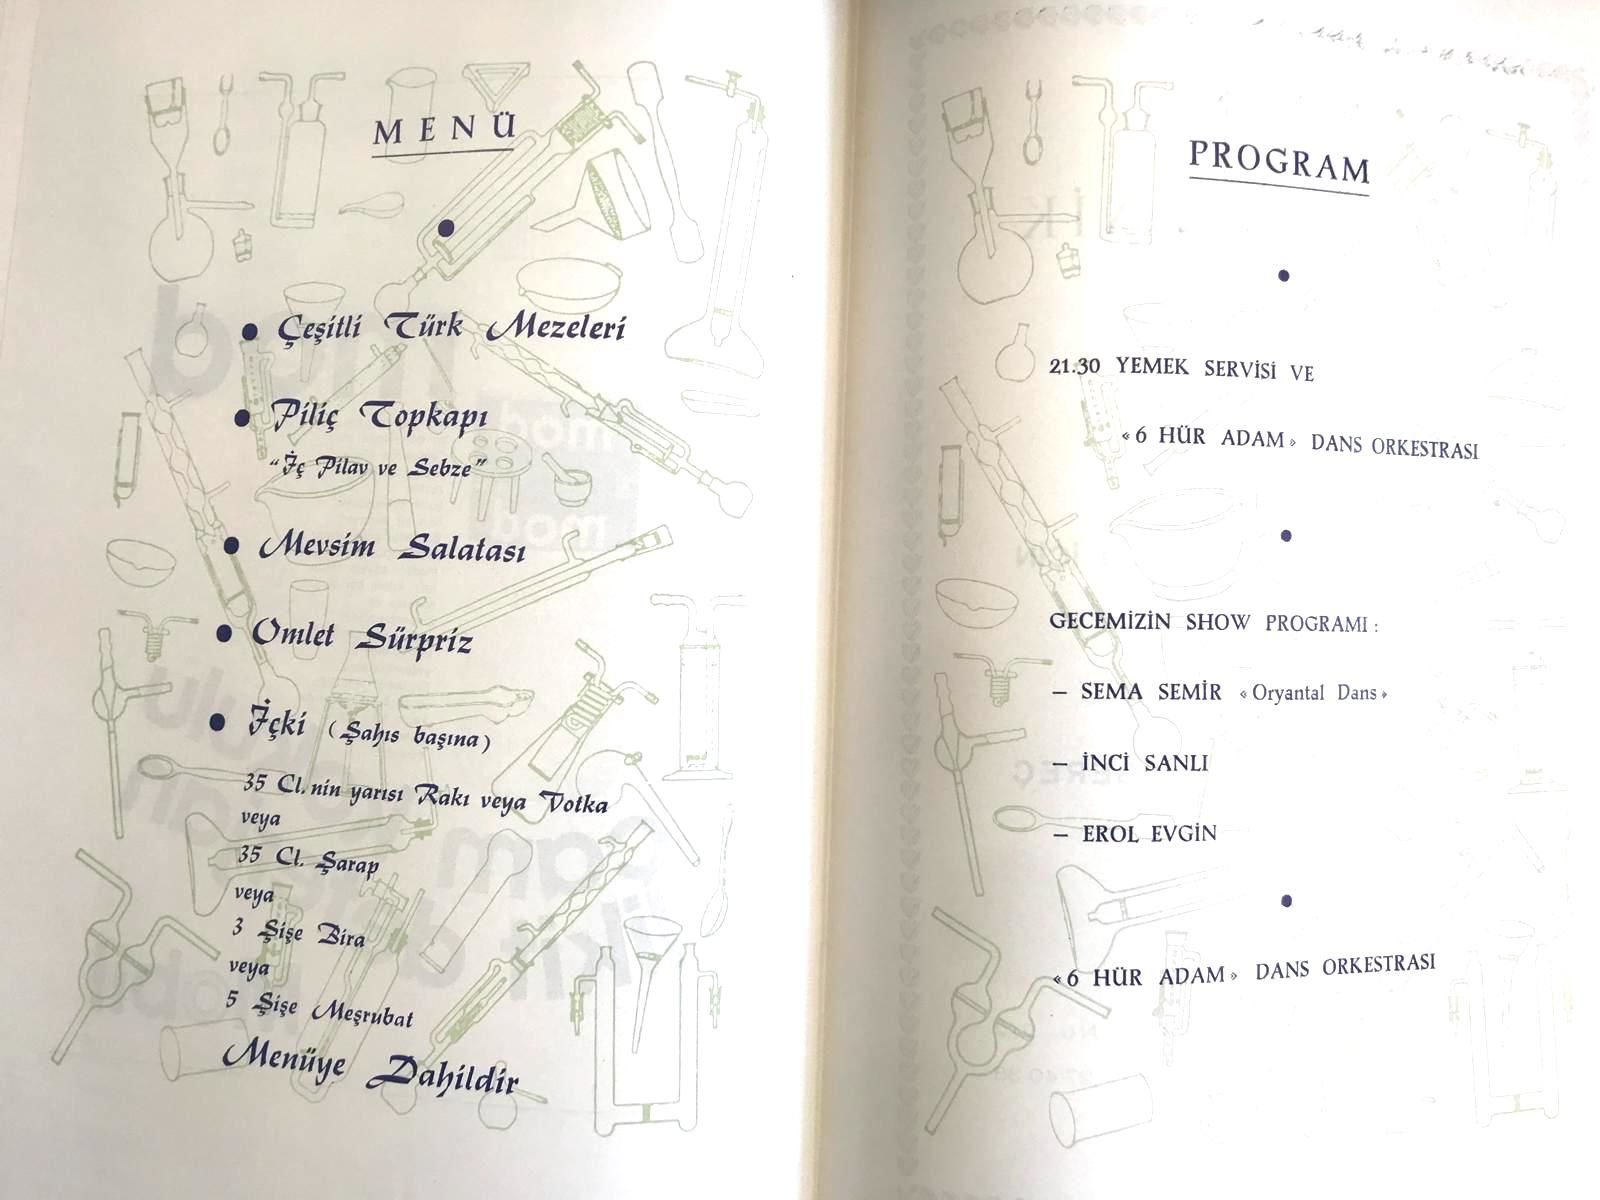 MENÜ
Çeşitli Türk Mezeleri
Piliç Topkapı
"İç Pilav ve Sebze"
Mevsim Salatası
Omlet Sürpriz
İçki (Şahıs başına)
35 Cl.nin yarısı Rakı veya Votka
veya
35 Cl. Şarap
veya
3 Şişe Bira
veya
5 Şişe Meşrubat
Menüye Dahildir
PROGRAM
21.30 YEMEK SERVİSİ VE
«6 HÜR ADAM» DANS ORKESTRASI
GECEMİZİN SHOW PROGRAMI :
— SEMA SEMİR «Oryantal Dans»
— İNCİ SANLI
— EROL EVGİN
«6 HÜR ADAM» DANS ORKESTRASI